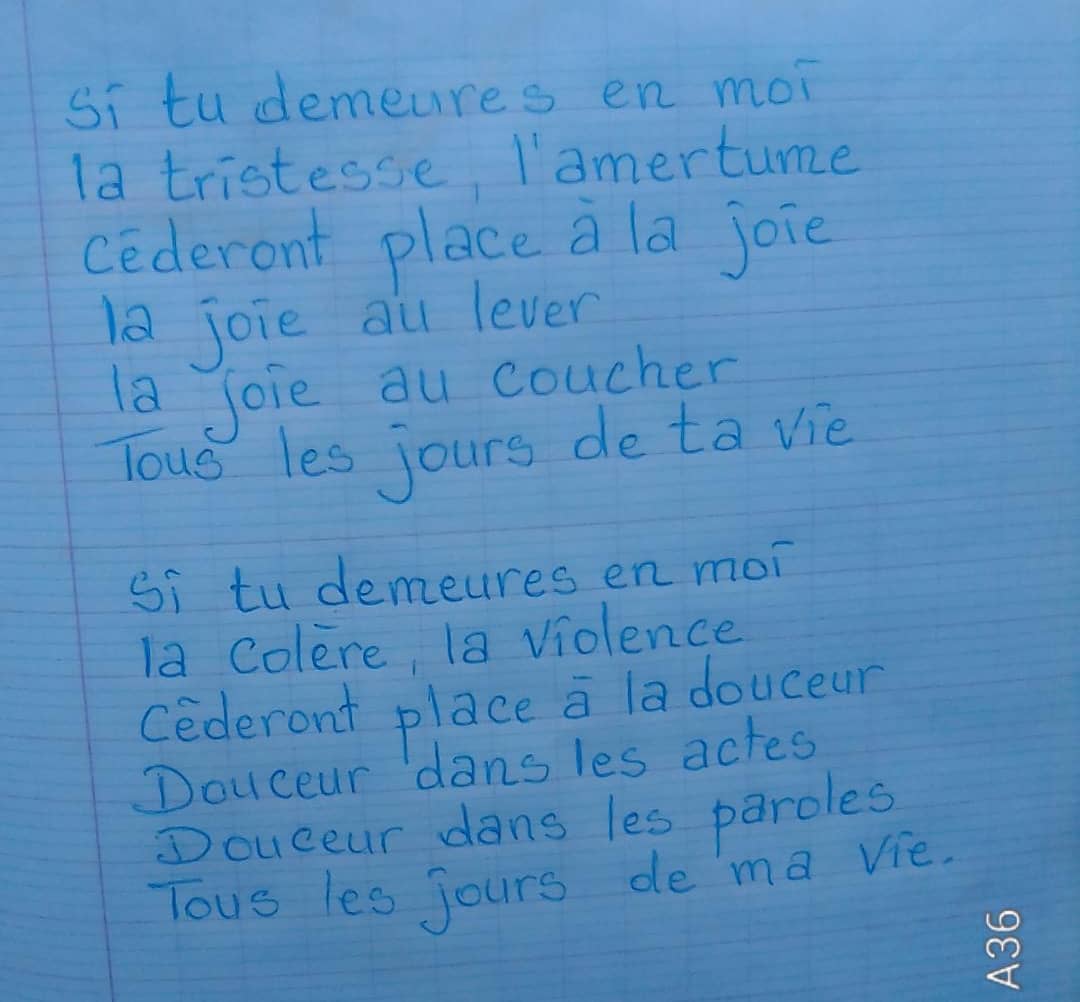 Si tu demeures en moi
la tristesse, l'amertume
Céderont place à la joie
la joie au lever
la joie au coucher
Tous les jours de ta vie
Si tu demeures en moi
la Colère, la violence
Céderont place à la douceur
Douceur dans les actes
Douceur dans les paroles
Tous les jours de ma vie.
A36